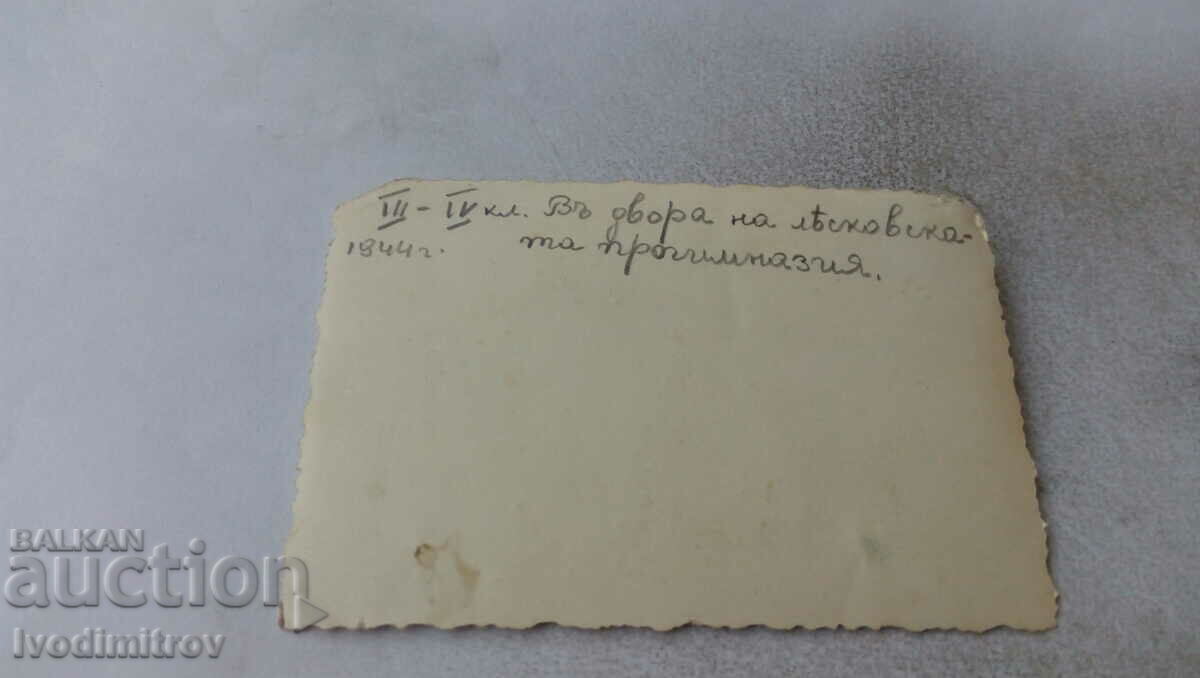 III - IV кл. Въ двора на лѣсковска-
1944 г. та прогимназия.
BALKAN
auction
Ivodimitrov